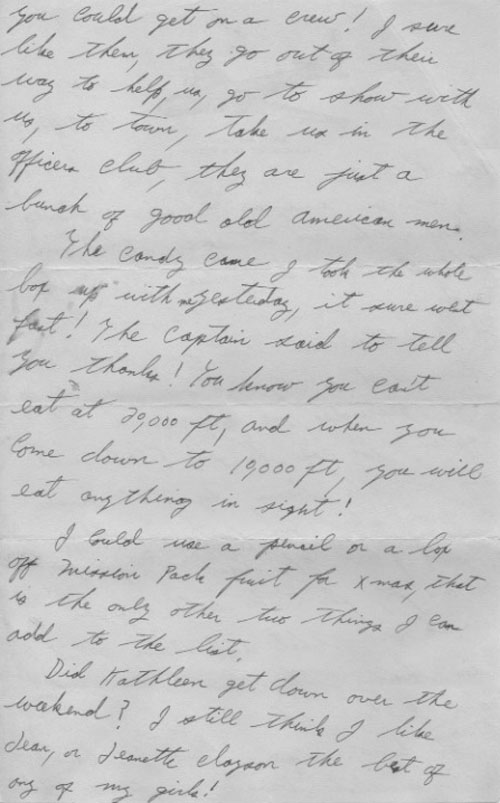 you could get on a crew! I sure
like them, they go out of their
way to help us, go to show with
us, to town, take us in the
officers club, they are just a
bunch of good old american men.
The candy came I took the whole
box up with yesterday, it sure went
fast! The captain said to tell
you thanks! You know you can't
eat at 20,000 ft, and when you
come down to 19,000 ft, you will
eat anything in sight!
I could use a pencil or a box
off Mission Pack fruit for xmas, that
is the only other two things I can
add to the list.
Did Kathleen get down over the
weekend? I still think I like
Jean, or Jeanette Clayson the best of
any of my girls!